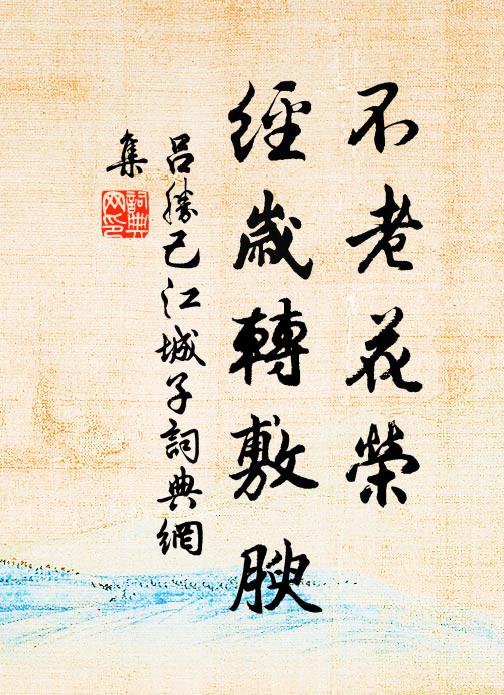 不老花榮
經歲轉敷腴
呂勝己江城子詞典網
集
詞典
网印